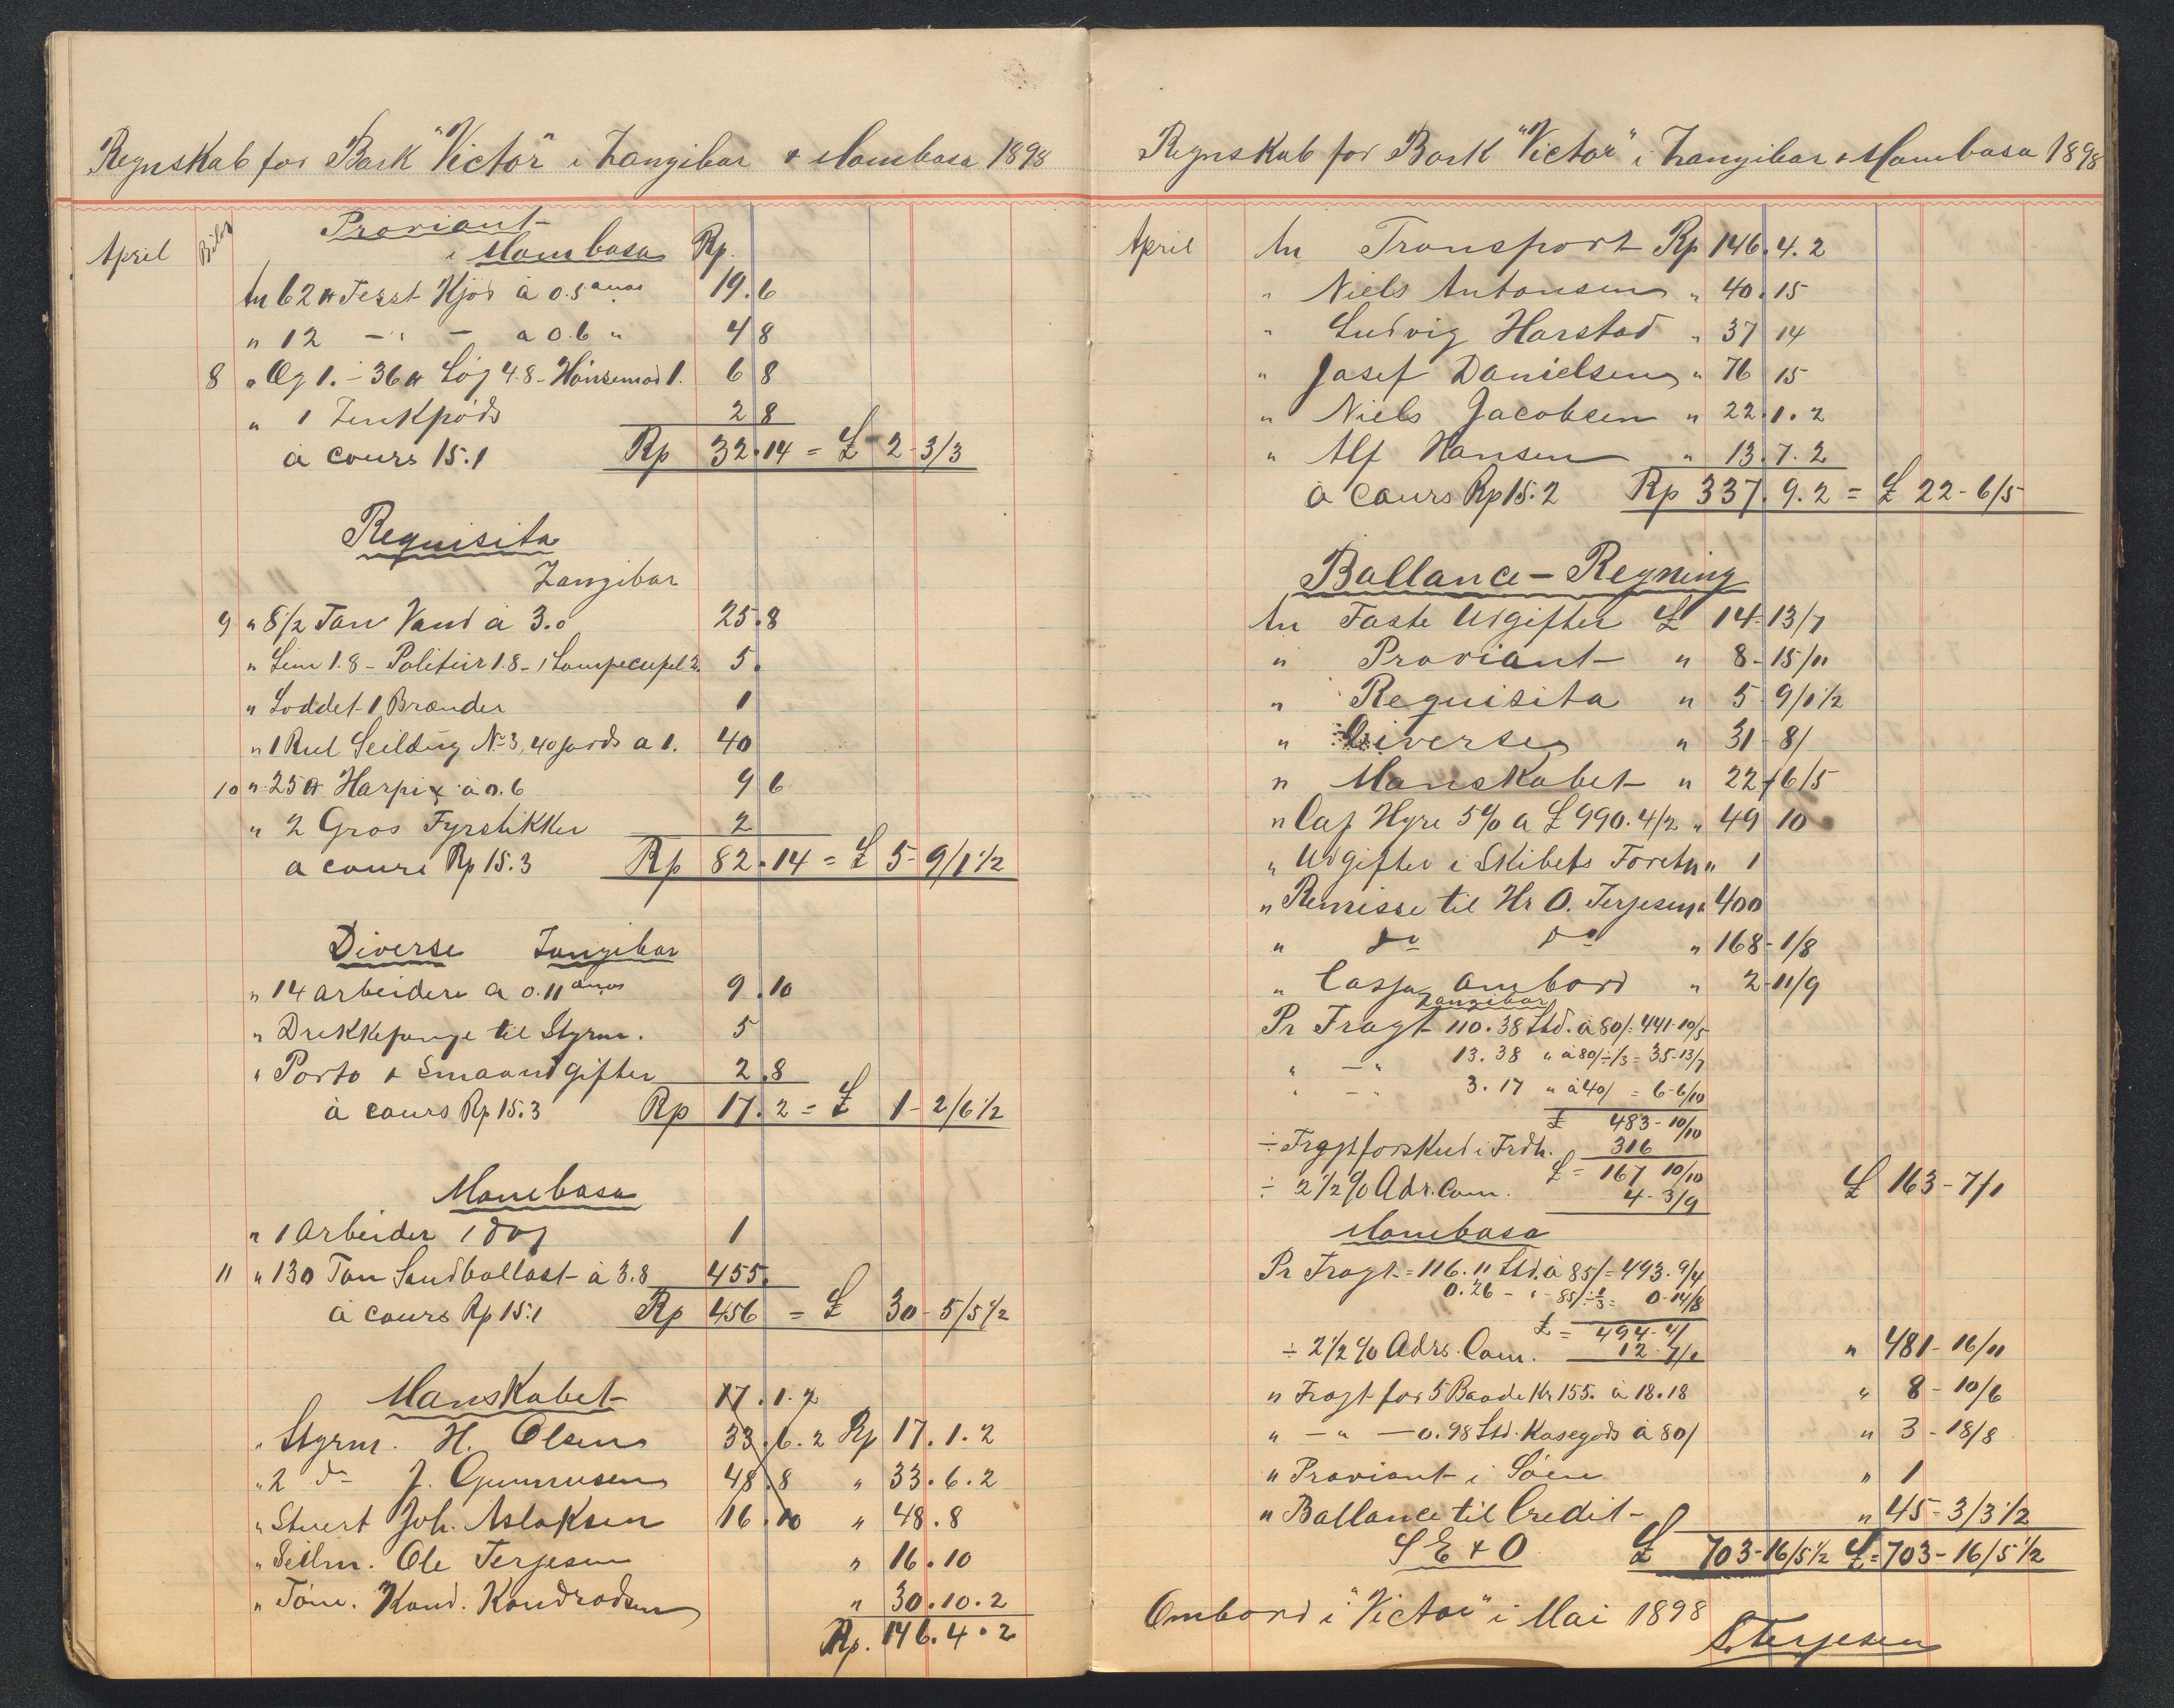 Regnskab for Bark "Victor" i Zangibar & Mombasa 1898
Proviant
April Bilag i Mombasa Rp.
An 62 ℔ Ferst Kjød à 0.5 anas 19.6
" 12 - " - a 0.6 " 4 8
8 " Æg 1. - 36 ℔ Løg 4.8 - Hønsemad 1. 6 8
" 1 Zenkpøds 2 8
à cours 15.1 Rp 32.14 = £ 2-3/3
Requisita
Zangibar
9 " 8 1/2 Ton Vand à 3.0 25.8
" Lim 1.8 - Politur 1.8 - 1 Lampecupel 2. 5.
" Loddet 1 Brænder 1
" 1 Rul Seildug No 3, 40 jards a 1. 40
10 " 25 ℔ Harpix à 0.6 9 6
" 2 Gros Fyrstikker 2
a cours Rp 15.3 Rp 82.14 = £ 5-9/1 1/2
Diverse Zangibar
" 14 arbeidere a 0.11 anas 9.10
" Drikkepenge til Styrm. 5
" Porto & Smaaudgifter 2.8
à cours Rp 15.3 Rp 17.2 = £ 1-2/6 1/2
Mombasa
" 1 Arbeider 1 dag 1
11 " 130 Ton Sandballast à 3.8 455.
à cours Rp 15.1 Rp 456 = £ 30-5/5 1/2
Manskabet 17.1.2
" Styrm. H. Olsen 33.6.2 Rp 17.1.2
" 2 do J. Gunnusen 48.8 " 33.6.2
" Stuert Joh. Aslaksen 16.10 " 48.8
" Seilm. Ole Terjesen " 16.10
" Tøm. Kond. Kondradsen " 30.10.2
Rp. 146.4.2
Regnskab for Bark "Victor" i Zangibar & Mombasa 1898
April An Transport Rp 146.4.2
" Niels Antonsen " 40.15
" Ludvig Harstad " 37 14
" Josef Danielsen " 76 15
" Niels Jacobsen " 22.1.2
" Alf Hansen " 13.7.2
à cours Rp 15.2 Rp 337.9.2 = £ 22-6/5
Ballance - Regning
An Faste Udgifter £ 14-13/7
" Proviant " 8-15/11
" Requisita " 5-9/1 1/2
" Diverse " 31-8/
" Manskabet " 22-6/5
" Cap Hyre 5% a £ 990.4/2 " 49 10
" Udgifter i Skibets Foretn " 1
" Remisse til Hr O. Terjesen " 400
" do do " 168-1/8
" Cassa ombord " 2-11/9
Zangibar
Pr Fragt 110.38 Std. à 80/- 441-10/5
" - " 13.38 " à 80/÷1/3 = 35-13/7
" - " 3.17 " à 40/ = 6-6/10
£ 483-10/10
÷ Fragtforskud i Frdh. 316
£ = 167 10/10
÷ 2 1/2 % Adr. Com. 4-3/9 £ 163-7/1
Mombasa
Pr Fragt = 116.11 Std. à 85/ = 493.9/4
0.26 - " - 85/÷1/3 = 0-14/8
£ = 494-4/
÷ 2 1/2 % Adrs. Com. 12-7/1 " 481-16/11
" Fragt for 5 Baade Kr 155. à 18.18 " 8-10/6
" - " - 0.98 Std. Kasegods à 80/ " 3-18/8
" Proviant i Søen " 1
" Ballance til Credit " 45-3/3 1/2
S E & O £ 703-16/5 1/2 £ = 703-16/5 1/2
Ombord i "Victor" i Mai 1898
S. Terjesen